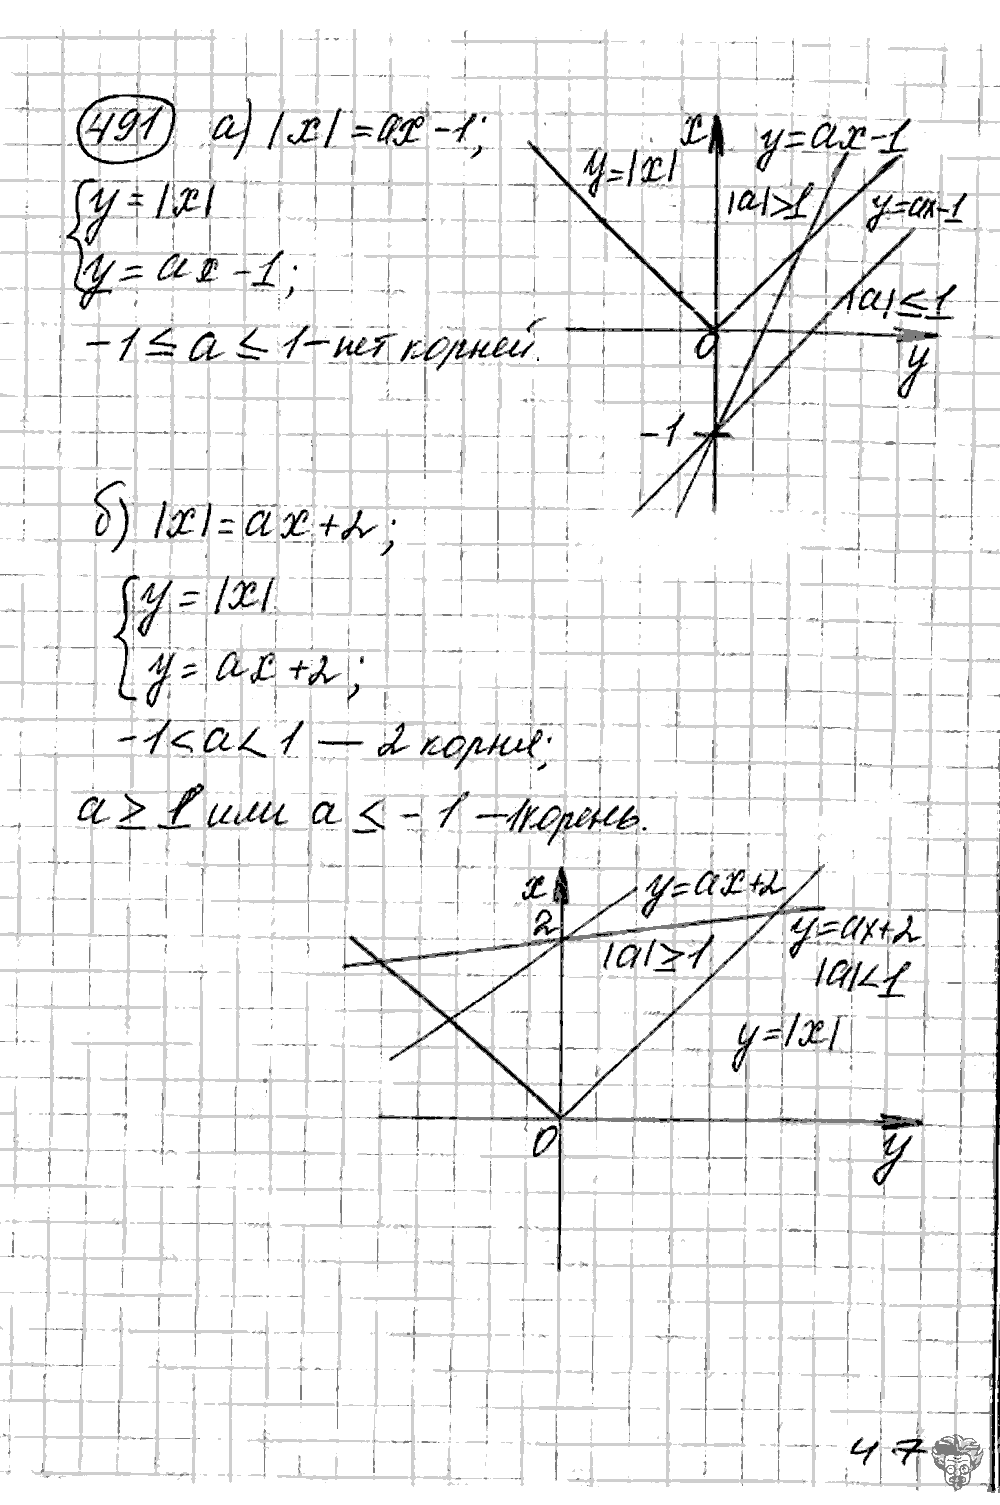 491 а) |x| = ax - 1;
{ y = |x|
y = ax - 1;
-1 ≤ a ≤ 1 - нет корней.
x
y = |x|
y = ax - 1
|a| > 1
y = ax - 1
|a| ≤ 1
0
y
-1
б) |x| = ax + 2;
{ y = |x|
y = ax + 2;
-1 < a < 1 — 2 корня;
a ≥ 1 или a ≤ -1 - 1 корень.
x
2
y = ax + 2
|a| ≥ 1
y = ax + 2
|a| < 1
y = |x|
0
y
47